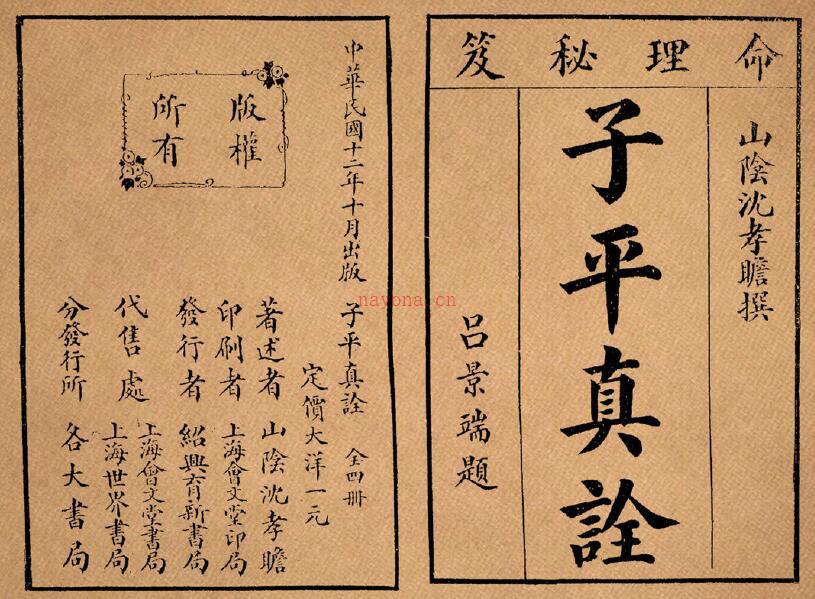 命理秘笈
山陰沈孝瞻撰
子平真詮
呂景端題
中華民國十二年十月出版
子平真詮　全四冊
定價大洋一元
版權
所有
著述者　山陰沈孝瞻
印刷者　上海會文堂印局
發行者　紹興育新書局
代售處　上海會文堂書局
上海世界書局
分發行所　各大書局
nayona.cn